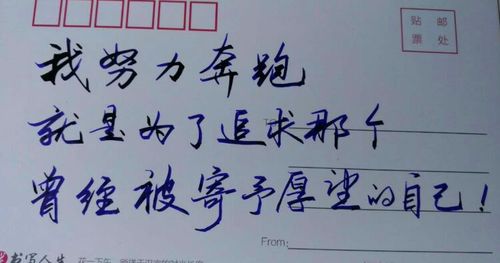 贴 邮
票 处
我努力奔跑
就是为了追求那个
曾经被寄予厚望的自己！
From:
书写人生